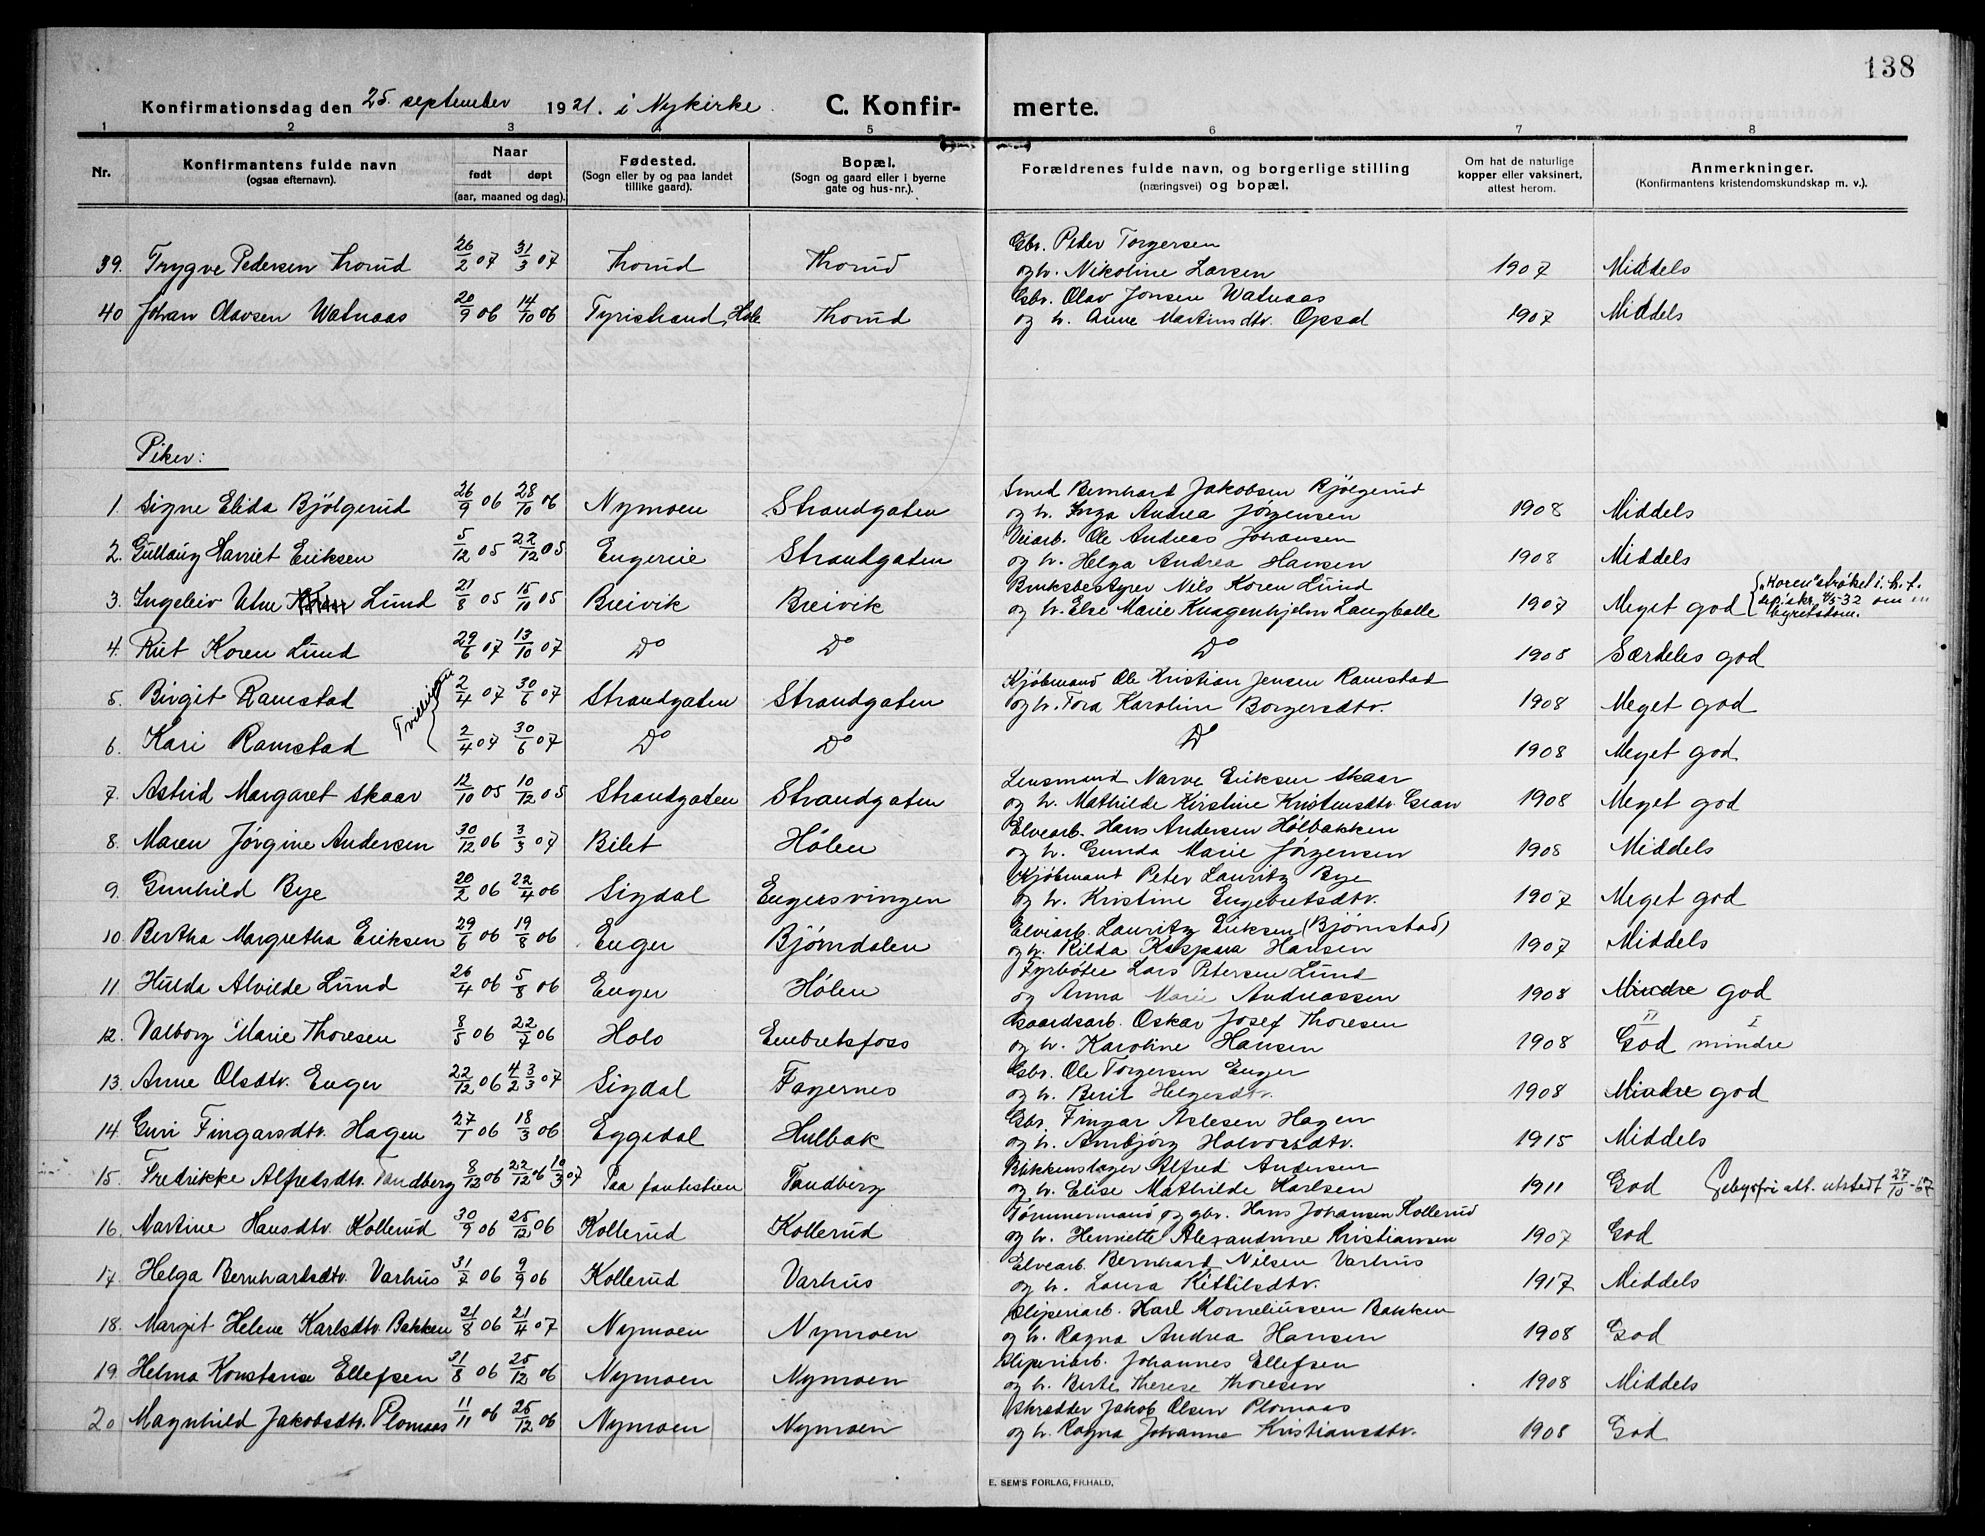 138
Konfirmationsdag den 25. september 1921. i Nykirke. C. Konfir- merte.
1 2 3 4 5 6 7 8
Nr. Konfirmantens fulde navn (ogsaa efternavn). Naar født døpt (aar, maaned og dag). Fødested. (Sogn eller by og paa landet tillike gaard). Bopæl. (Sogn og gaard eller i byerne gate og hus-nr.). Forældrenes fulde navn, og borgerlige stilling (næringsvei) og bopæl. Om hat de naturlige kopper eller vaksinert, attest herom. Anmerkninger. (Konfirmantens kristendomskundskap m. v.).
Gbr. Peter Torgersen
39. Trygve Pedersen Thorud 26/2 07 31/3 07 Thorud Thorud og h. Nikoline Larsen 1907 Middels
Gbr. Olav Jonsen Watnaas
40 Johan Olavsen Watnaas 20/9 06 14/10 06 Tyristrand, Hole Thorud og h. Anne Martinsdtr. Opsal 1907 Middels
Piker:
Smed Bernhard Jakobsen Bjölgerud
1. Signe Elida Bjölgerud 26/9 06 28/10 06 Nymoen Strandgaten og h. Inga Andrea Jørgensen 1908 Middels
Veiarb. Ole Andreas Johansen
2. Gullaug Harriet Eriksen 5/12 05 22/12 05 Engereie Strandgaten og h. Helga Andrea Hansen 1908 Middels
Bruksbestyrer Nils Koren Lund
3. Ingeleiv Utne Koren Lund 21/8 05 15/10 05 Breivik Breivik og h. Else Marie Knagenhjelm Langballe 1907 Meget god { "Koren" strøket i h. t. skr. 4/5-32 om byretsdom.
4. Riet Koren Lund 29/6 07 13/10 07 Do Do Do 1908 Særdeles god
Kjöbmand Ole Kristian Jensen Ramstad
5. Birgit Ramstad Tvillinger { 2/4 07 30/6 07 Strandgaten Strandgaten og h. Tora Karoline Borgersdtr. 1908 Meget god
6. Kari Ramstad 2/4 07 30/6 07 Do Do Do 1908 Meget god
Lensmand Narve Eriksen Skaar
7. Astrid Margaret Skaar 12/10 05 10/12 05 Strandgaten Strandgaten og h. Mathilde Kirstine Kristensdtr. Gran 1908 Meget god
Elvearb. Hans Andersen Hølbakken
8. Maren Jørgine Andersen 30/12 06 3/3 07 Bilet Hölen og h. Gunda Marie Jørgensen 1908 Middels
Kjöbmand Peter Lauritz Bye
9. Gunhild Bye 20/2 06 22/4 06 Sigdal Engersvingen og h. Kristine Engebretsdtr. 1907 Meget god
Elvearb. Lauritz Eriksen (Bjørnstad)
10. Bertha Margretha Eriksen 29/6 06 19/8 06 Enger Bjørndalen og h. Rilda Kaspara Hansen 1907 Middels
Fyrböter Lars Petersen Lund
11 Hulda Alvilde Lund 26/4 06 5/8 06 Enger Hölen og Anna Marie Andreassen 1908 Mindre god
Gaardsarb. Oskar Josef Thoresen
12. Valborg Marie Thoresen 8/5 06 22/7 06 Holo Embretsfoss og h. Karoline Hansen 1908 God II mindre I
Gbr. Ole Torgersen Enger
13. Anne Olsdtr. Enger 22/12 06 4/2 3/3 07 Sigdal Fagernes og h. Berit Helgesdtr. 1908 Mindre god
Gbr. Fingar Aslesen Hagen
14. Guri Fingarsdtr. Hagen 27/1 06 18/3 06 Eggedal Hulbak og h. Annbjörg Halvorsdtr. 1915 Middels
Bikkenslager Alfred Andersen
15. Fredrikke Alfredsdtr. Tandberg 8/12 06 22/12 06 10/3 07 Paa fantestien Tandberg og h. Elise Mathilde Karlsen 1911 God Gebyrfri att. utstedt 27/10-67
Tømmermand og gbr. Hans Johansen Kollerud
16. Martine Hansdtr. Kollerud 30/9 06 25/12 06 Kollerud Kollerud og h. Henriette Alexandrine Kristiansen 1907 God
Elvearb. Bernhard Nilsen Varhus
17 Helga Bernhardsdtr. Varhus 31/7 06 9/9 06 Kollerud Varhus og h. Laura Kittilsdtr. 1917 Middels
Sliperiarb. Karl Korneliussen Bakken
18. Margit Helene Karlsdtr. Bakken 21/8 06 21/4 07 Nymoen Nymoen og h. Ragna Andrea Hansen 1908 God
Sliperiarb. Johannes Ellefsen
19. Helma Konstanse Ellefsen 31/8 06 25/12 06 Nymoen Nymoen og h. Berte Therese Thoresen 1908 Middels
Skrædder Jakob Olsen Plomaas
20 Magnhild Jakobsdtr. Plomaas 11/11 06 25/12 06 Nymoen Nymoen og h. Ragna Johanne Kristiansdtr. 1908 God
E. SEM'S FORLAG, FR.HALD.